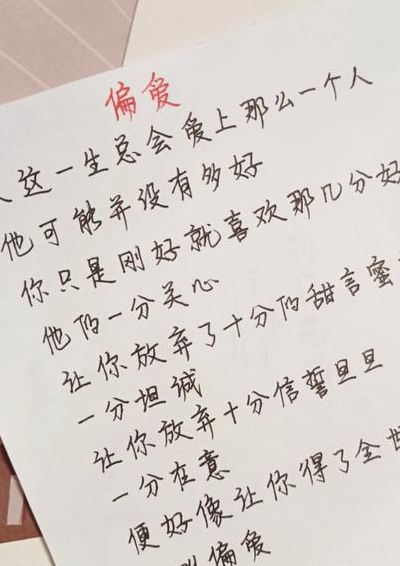 偏爱
人这一生总会爱上那么一个人
他可能并没有多好
你只是刚好就喜欢那几分好
他的一分关心
让你放弃了十分的甜言蜜
一分坦诚
让你放弃十分信誓旦旦
一分在意
便好像让你得了全世
叫偏爱